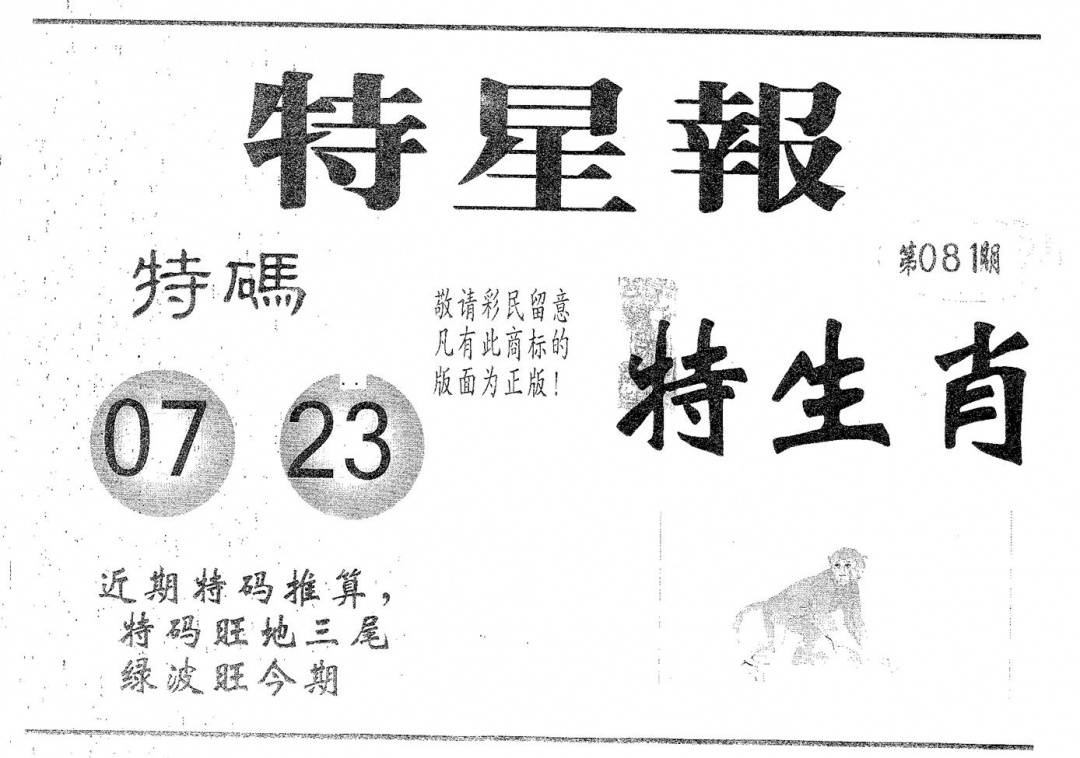 特星報
第081期
特碼
敬请彩民留意
凡有此商标的
版面为正版！
特生肖
07 23
近期特码推算，
特码旺地三尾
绿波旺今期